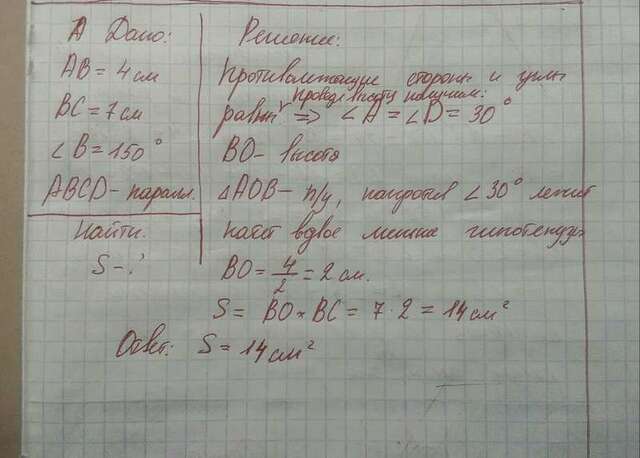 Дано:
AB = 4 см
BC = 7 см
∠B = 150°
ABCD - паралл.
Найти:
S - ?
Решение:
Противолежащие стороны и углы
проведя высоту получим:
равны ⇒ ∠A = ∠D = 30°
BO - высота
△AOB - п/у, напротив ∠30° лежит
катет вдвое меньше гипотенузы
BO = 4/2 = 2 см.
S = BO × BC = 7 · 2 = 14 см²
Ответ: S = 14 см²